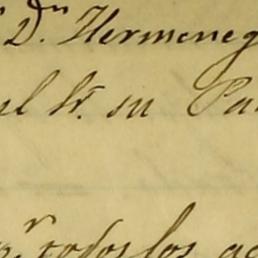 Dn. Hermeneg
el Sr. su Pa
todos los